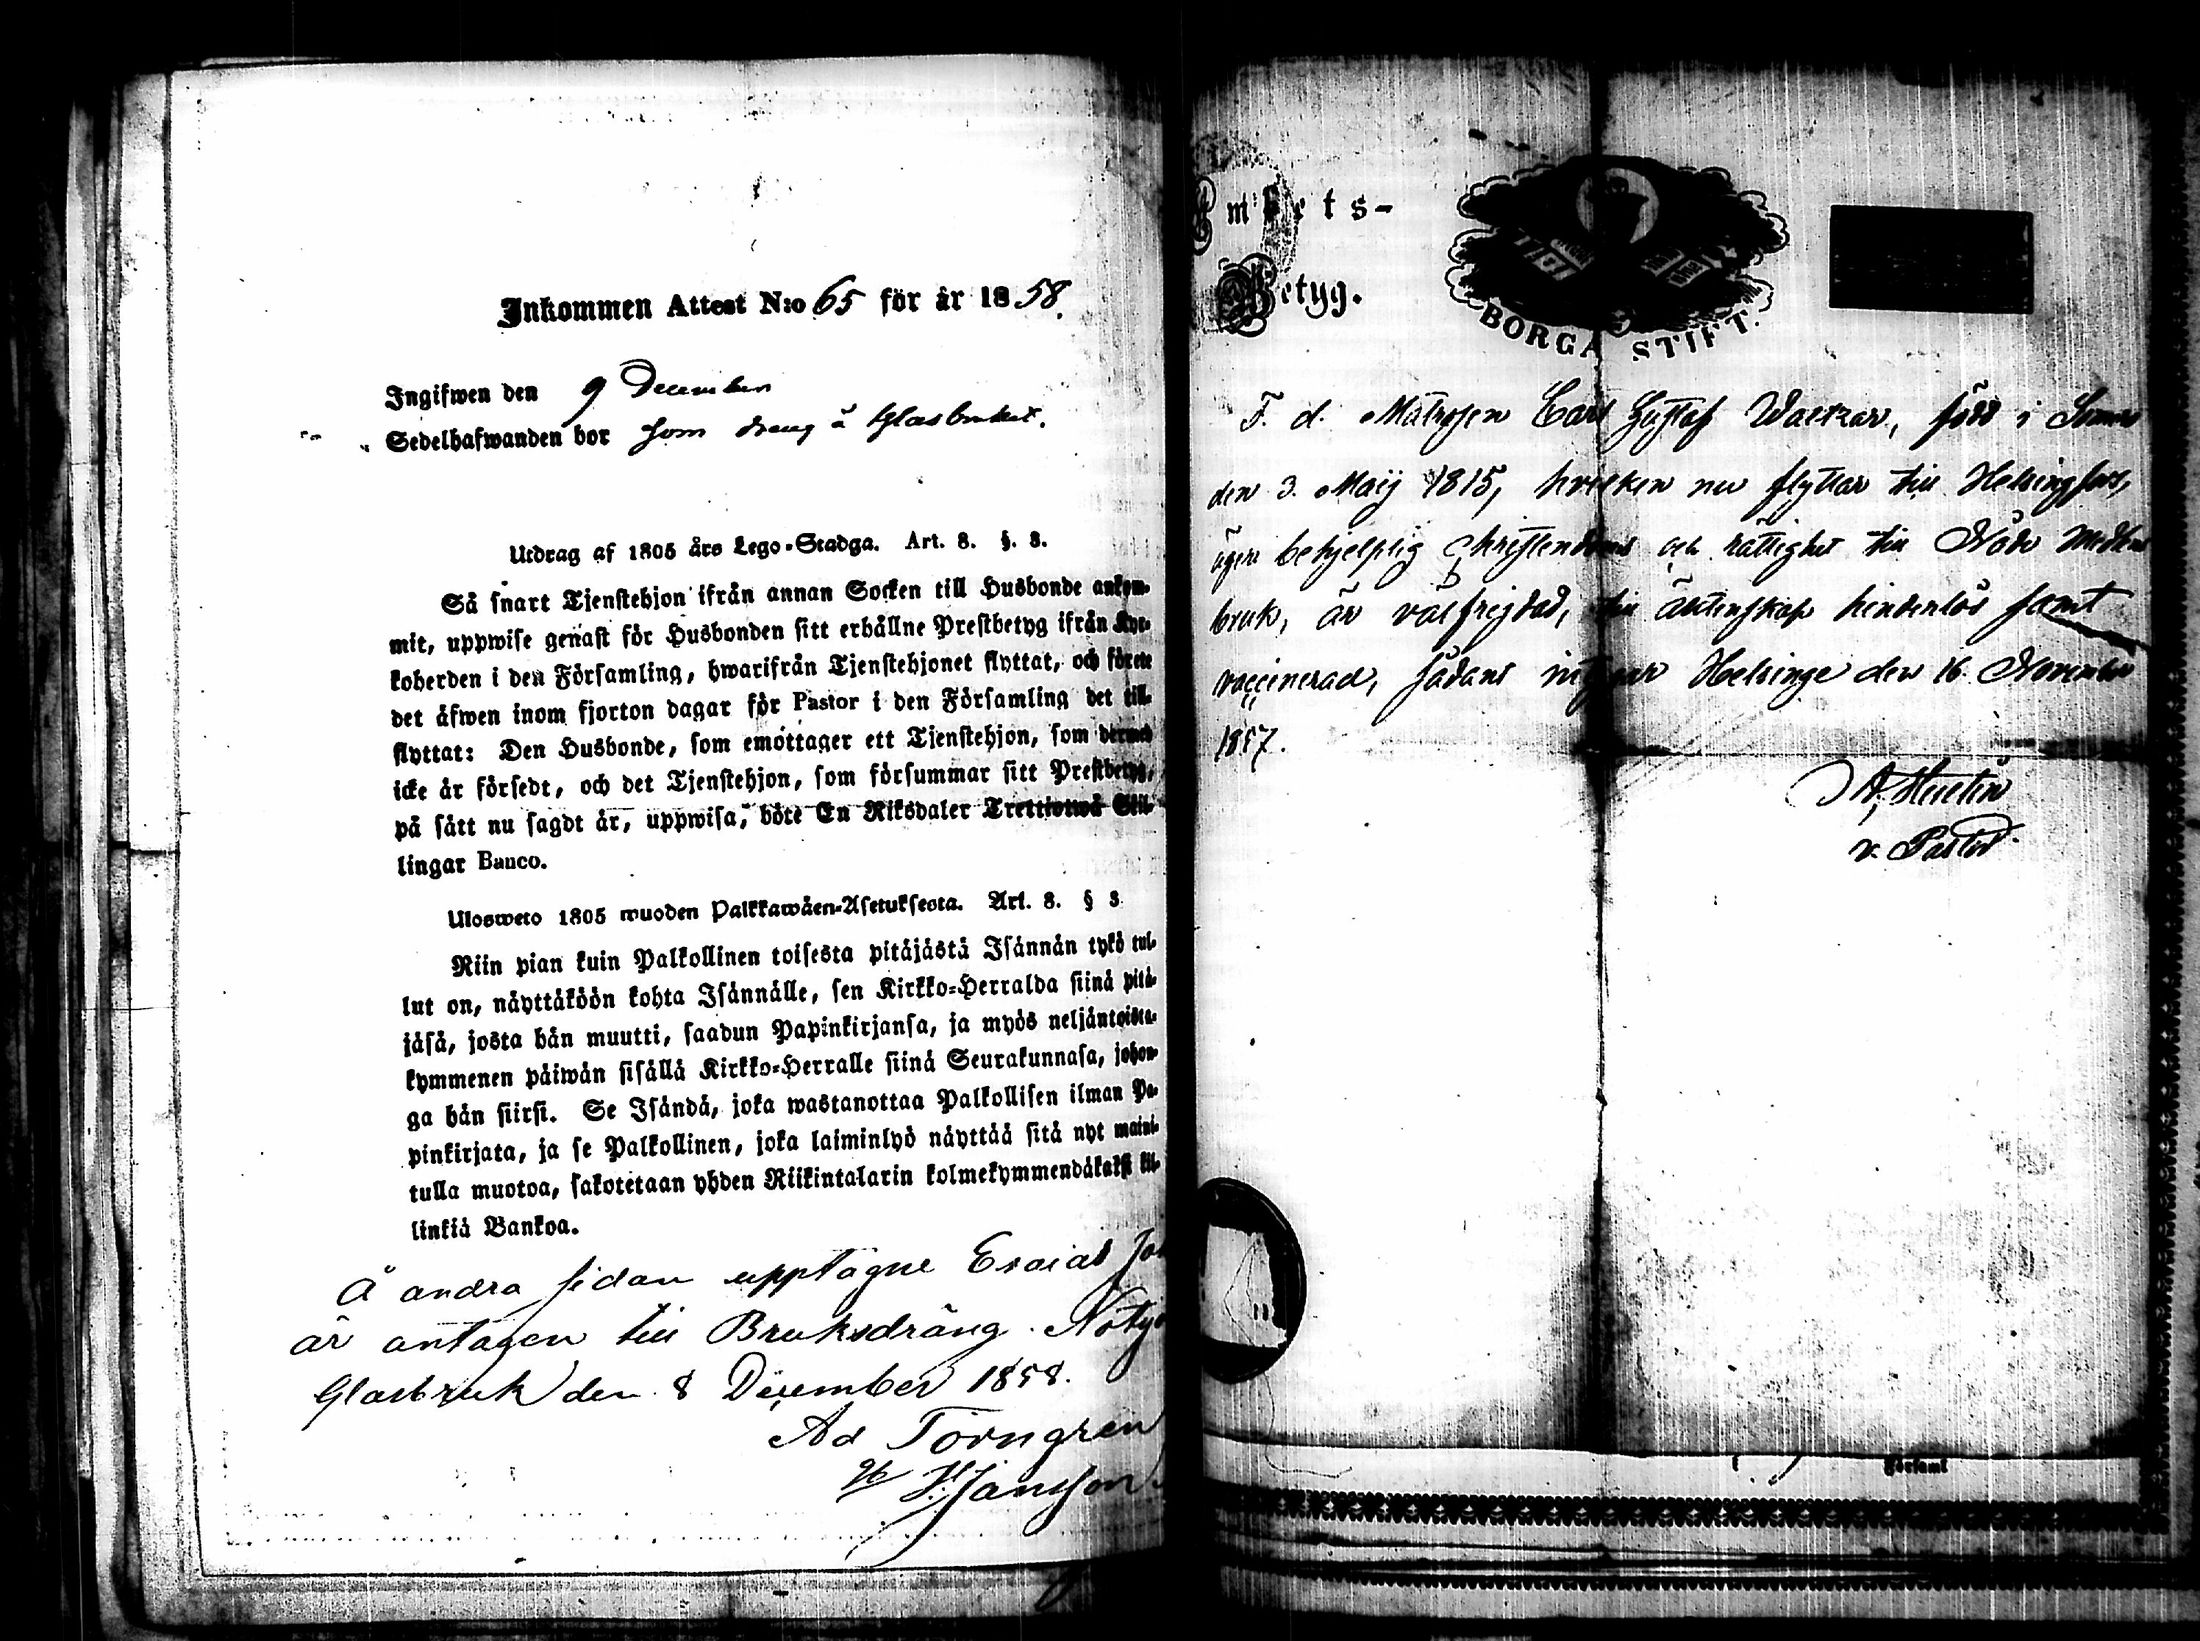 Inkommen Attest N:o 65 för år 1858.
Ingifwen den 9 December
Sedelhafwanden bor som dreng å Glasbruket.
Utdrag af 1805 års Lego-Stadga. Art. 8. §. 3.
Så snart Tjenstehjon ifrån annan Socken till Husbonde ankom-
mit, uppwise genast för Husbonden sitt erhållne Prestbetyg ifrån Kyr-
koherden i den Församling, hwarifrån Tjenstehjonet flyttat, och förete
det äfwen inom fjorton dagar för Pastor i den Församling det till-
flyttat: Den Husbonde, som emottager ett Tjenstehjon, som dermed
icke är försedt, och det Tjenstehjon, som försummar sitt Prestbetyg,
på sätt nu sagdt är, uppwisa, böte En Riksdaler Trettiotwå Skil-
lingar Banco.
Ulosweto 1805 wuoden Palkkawäen-Asetuksesta. Art. 8. § 3
Niin pian kuin Palkollinen toisesta pitäjästä Isännän tykö tul-
lut on, näyttäköön kohta Isännälle, sen Kirkko-Herralda siinä pitä-
jäsä, josta hän muutti, saadun Papinkirjansa, ja myös neljäntoista-
kymmenen päiwän sisällä Kirkko-Herralle siinä Seurakunnasa, johon-
ga hän siirsi. Se Isändä, joka wastanottaa Palkollisen ilman Pa-
pinkirjata, ja se Palkollinen, joka laiminlyö näyttää sitä nyt maini-
tulla muotoa, sakotetaan yhden Riikintalarin kolmekymmendäkaksi kil-
linkiä Bankoa.
Å andra sidan upptagne Esaias
är antagen till Bruksdräng.
Glasbruk den 8 December 1858.
Ad Törngren
Jansson
Embets-
Betyg.
BORGÅ STIFT.
F. d. Matrosen Carl Gustaf Walkar, född i
den 3. Maij 1815, hvilken nu flyttar till Helsingfors,
äger behjelplig Christendoms och rättighet till
bruk, är välfrejdad, till äktenskap hinderlös samt
vaccinerad, sådant intygar Helsinge den 16. November
1857.
v. Pastor.
Församl